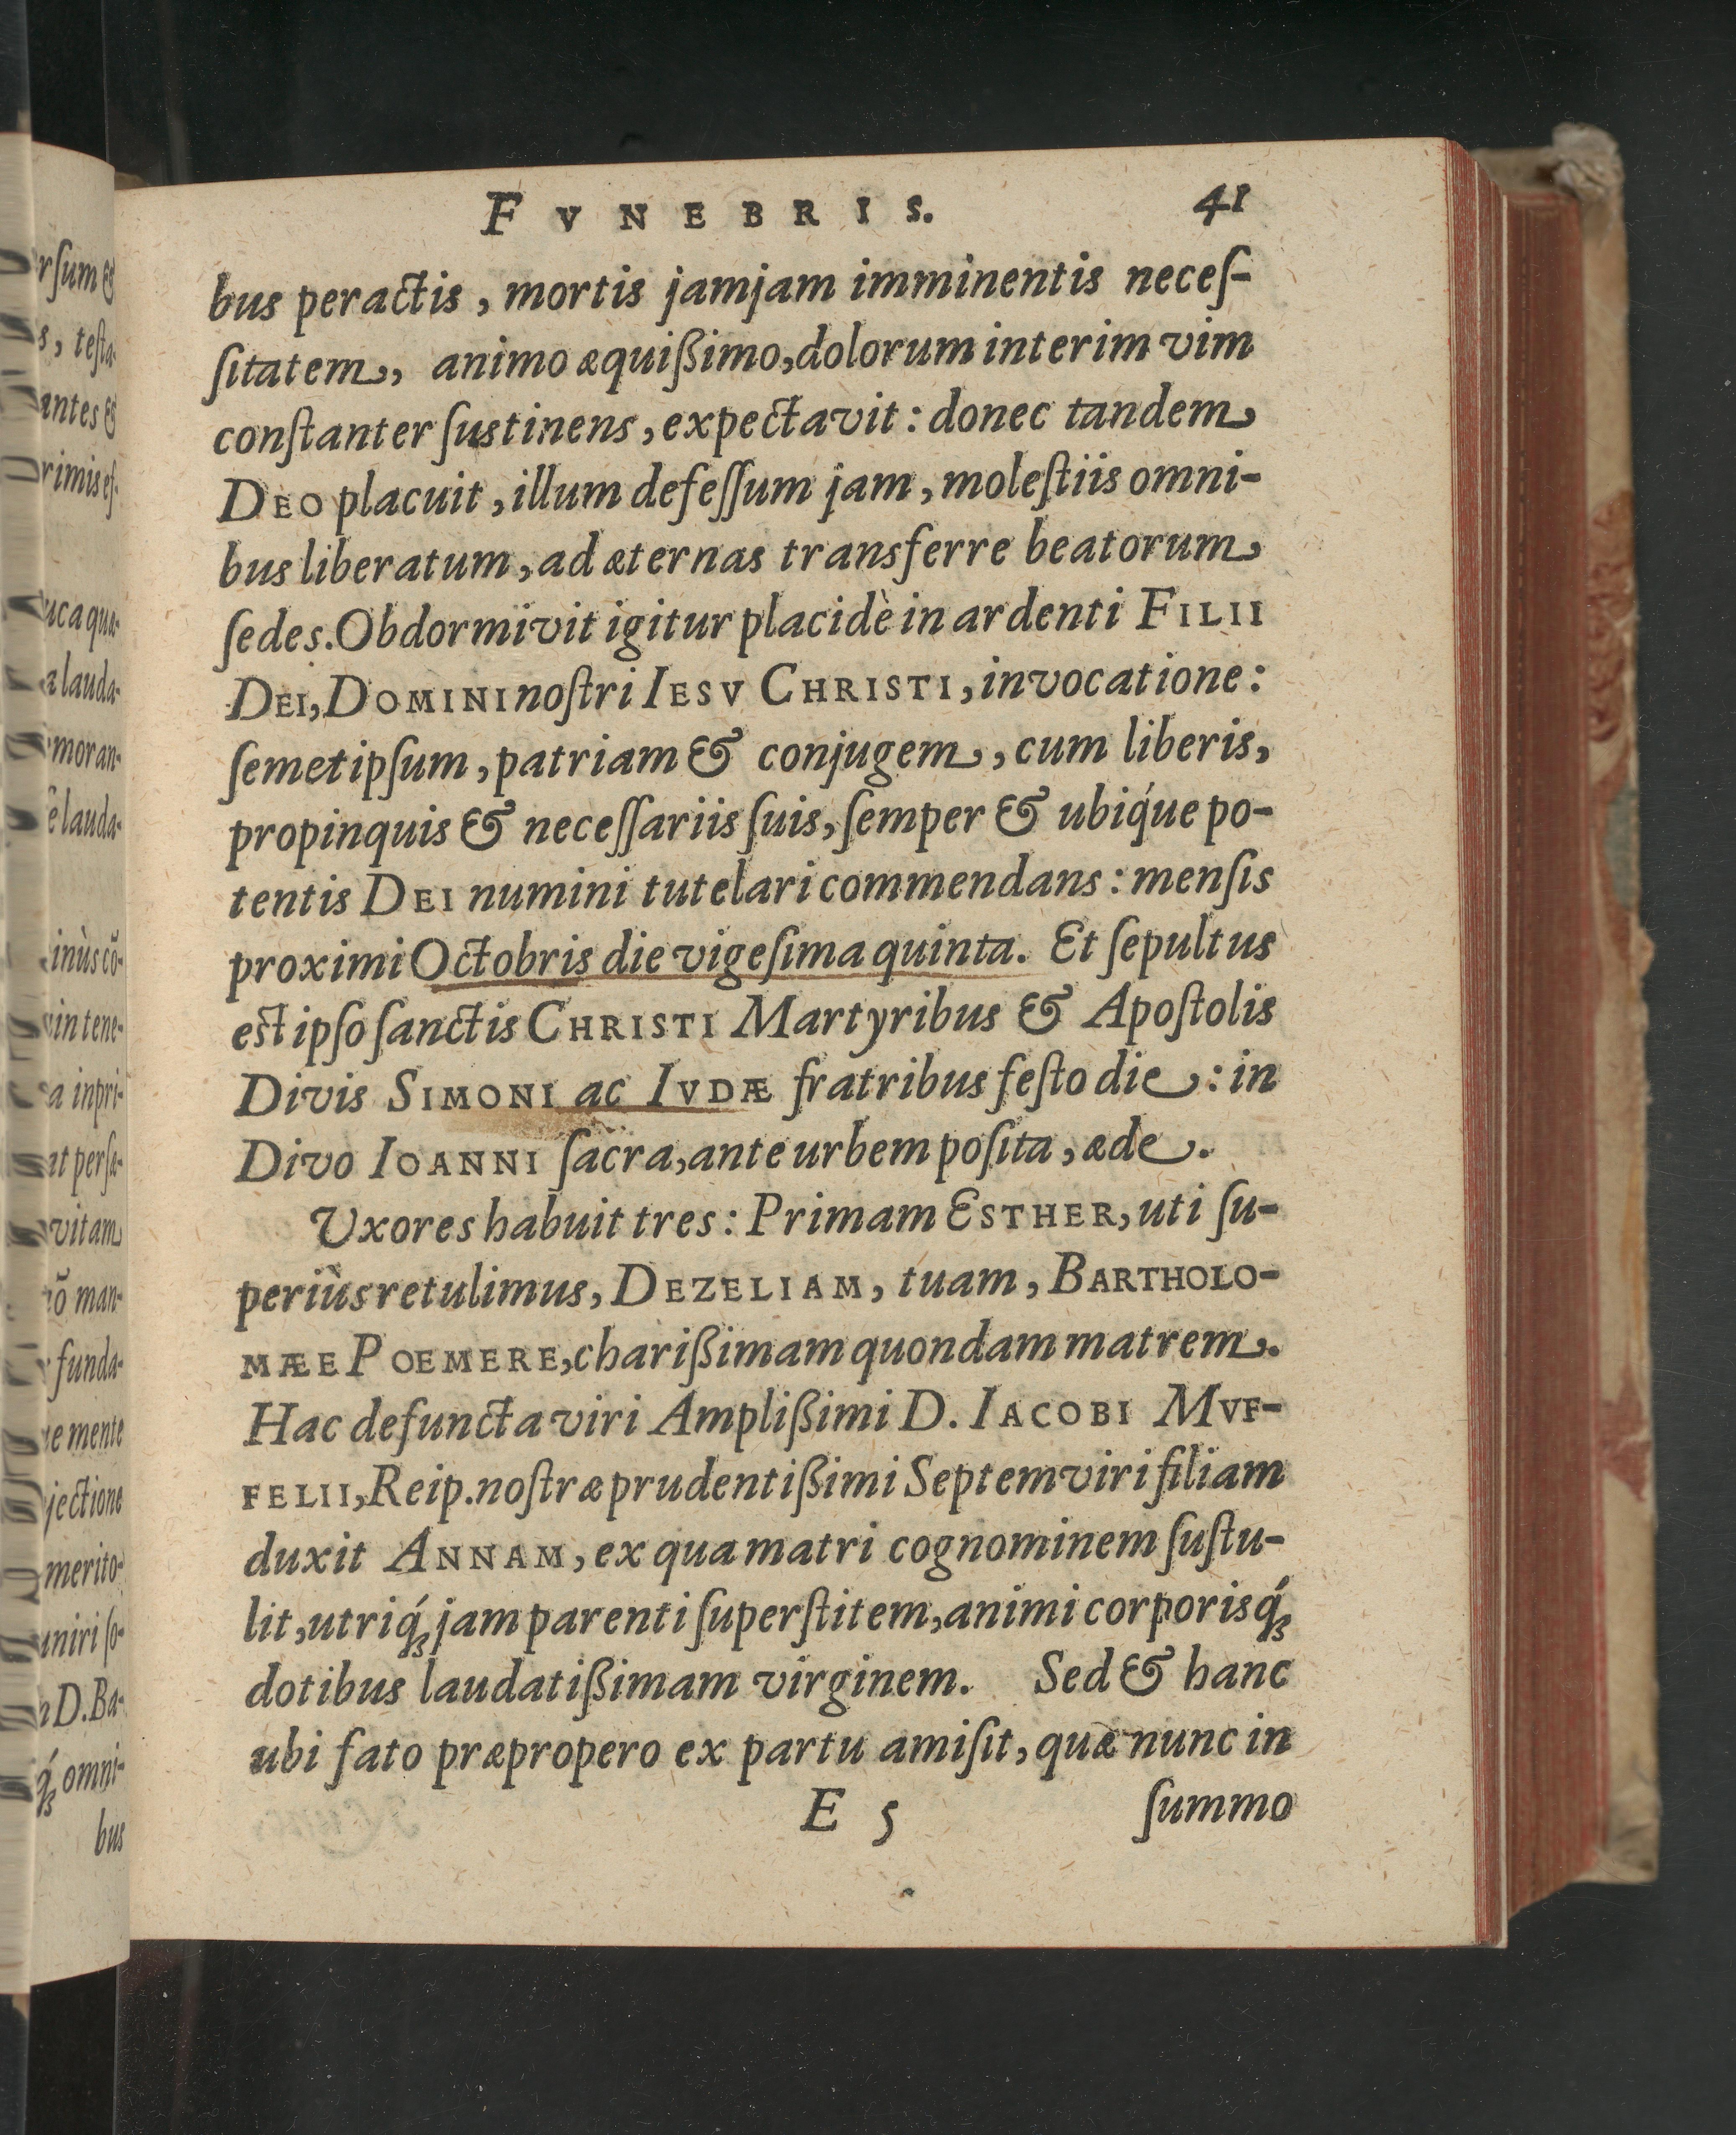 FVNEBRIS. 41
bus peractis, mortis jamjam imminentis neceſ-
ſitatem, animo æquißimo, dolorum interim vim
conſtanter ſustinens, expectavit: donec tandem
DEO placuit, illum defeſſum jam, moleſtiis omni-
bus liberatum, ad æternas transferre beatorum
ſedes. Obdormivit igitur placidè in ardenti FILII
DEI, DOMINI noſtri IESV CHRISTI, invocatione:
ſemetipſum, patriam & conjugem, cum liberis,
propinquis & neceſſariis ſuis, ſemper & ubiq́ue po-
tentis DEI numini tutelari commendans: menſis
proximi Octobris die vigeſima quinta. Et ſepultus
est ipſo ſanctis CHRISTI Martyribus & Apoſtolis
Divis SIMONI ac IVDÆ fratribus feſto die: in
Divo IOANNI ſacra, ante urbem poſita, æde.
Uxores habuit tres: Primam ESTHER, uti ſu-
periùs retulimus, DEZELIAM, tuam, BARTHOLO-
MÆE POEMERE, charißimam quondam matrem.
Hac defuncta viri Amplißimi D. IACOBI MVF-
FELII, Reip. noſtræ prudentißimi Septemviri filiam
duxit ANNAM, ex qua matri cognominem ſuſtu-
lit, utriq́ꝫ jam parenti ſuperſtitem, animi corporisq́ꝫ
dotibus laudatißimam virginem. Sed & hanc
ubi fato præpropero ex partu amiſit, quæ nunc in
E 5 ſummo
rſum &
s, teſta-
antes &
rimis eſ-
uca quæ-
a lauda-
moran-
ſe lauda-
inùs cõ-
in tene-
a inpri-
at perſæ-
vitam
õ man-
funda-
e mente
jectione
merito-
uniri ſo-
D. Ba-
q́ꝫ omni-
bus